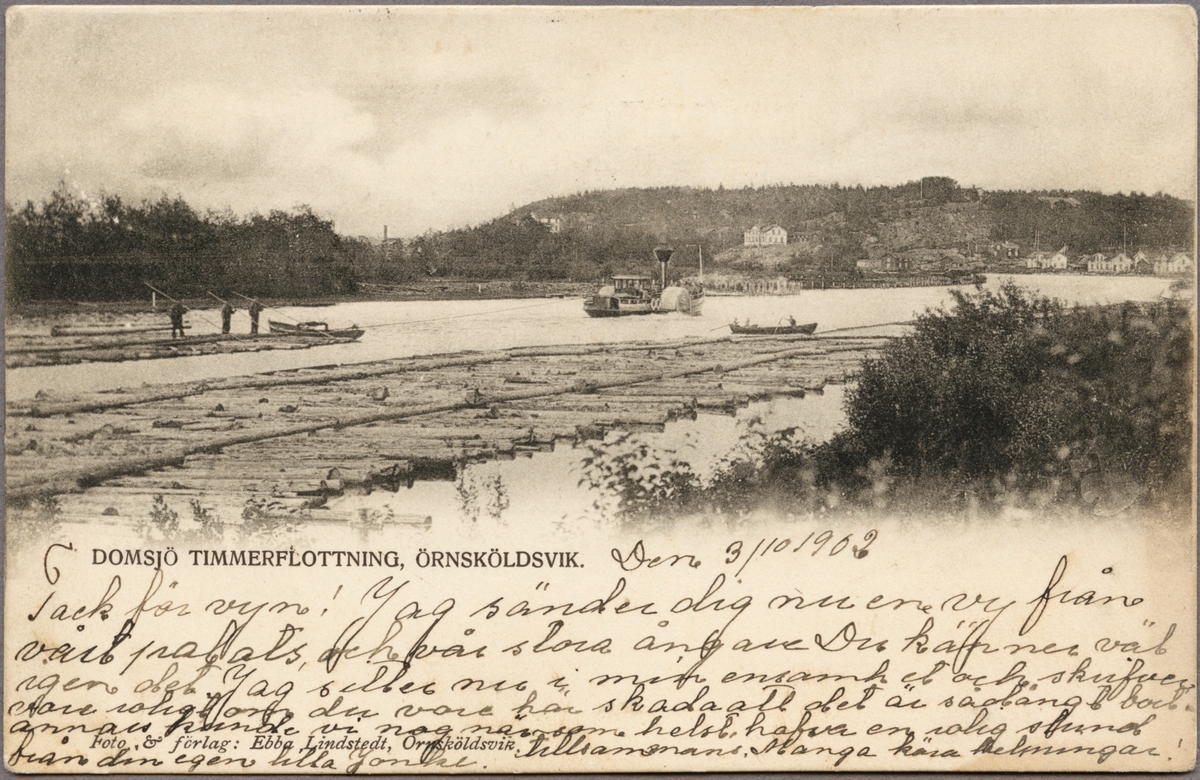 DOMSJÖ TIMMERFLOTTNING, ÖRNSKÖLDSVIK. Den 3/10 1902
Tack för vyn! Jag sänder dig nu en vy från
vårt palats, och vår stora ångare Du känner väl
igen det. Jag sitter nu i min ensamhet och skrifver
vore roligt om du vore här skada att det är så långt bort
annars kunde vi nog när som helst hafva en rolig stund
Foto & förlag: Ebba Lindstedt, Örnsköldsvik. tillsammans. Många kära helsningar!
från din egen lilla